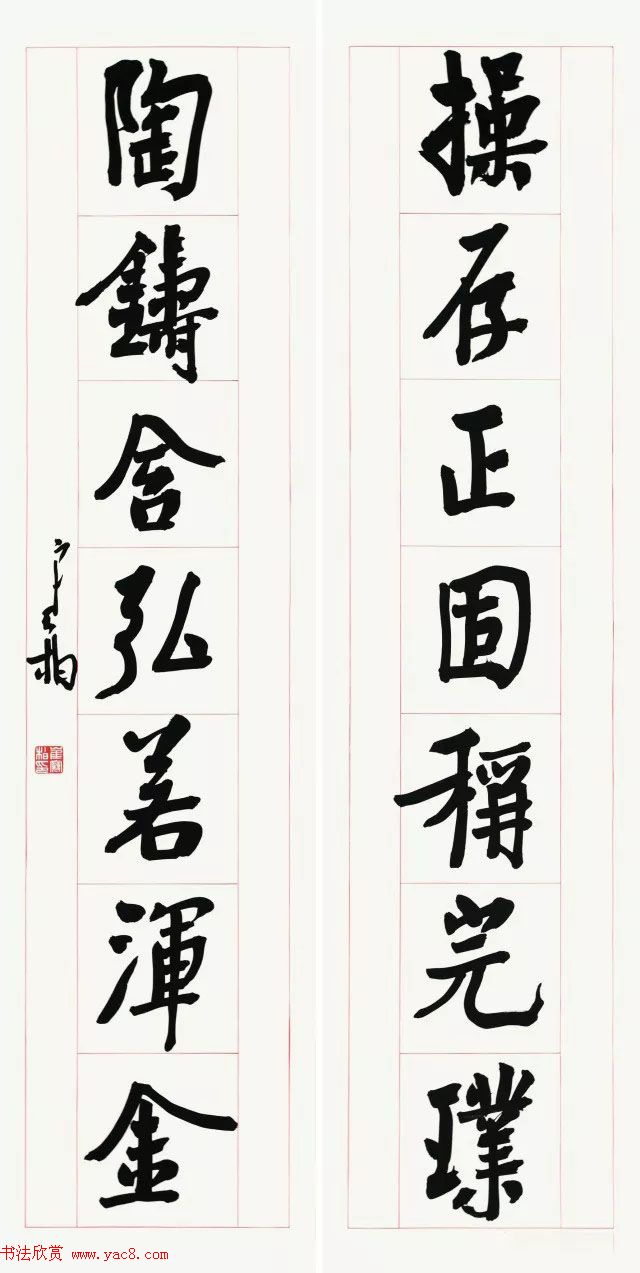 操存正固稱完璞
陶鑄含弘若渾金
寒柏
崔寒柏印
书法欣赏 www.yac8.com